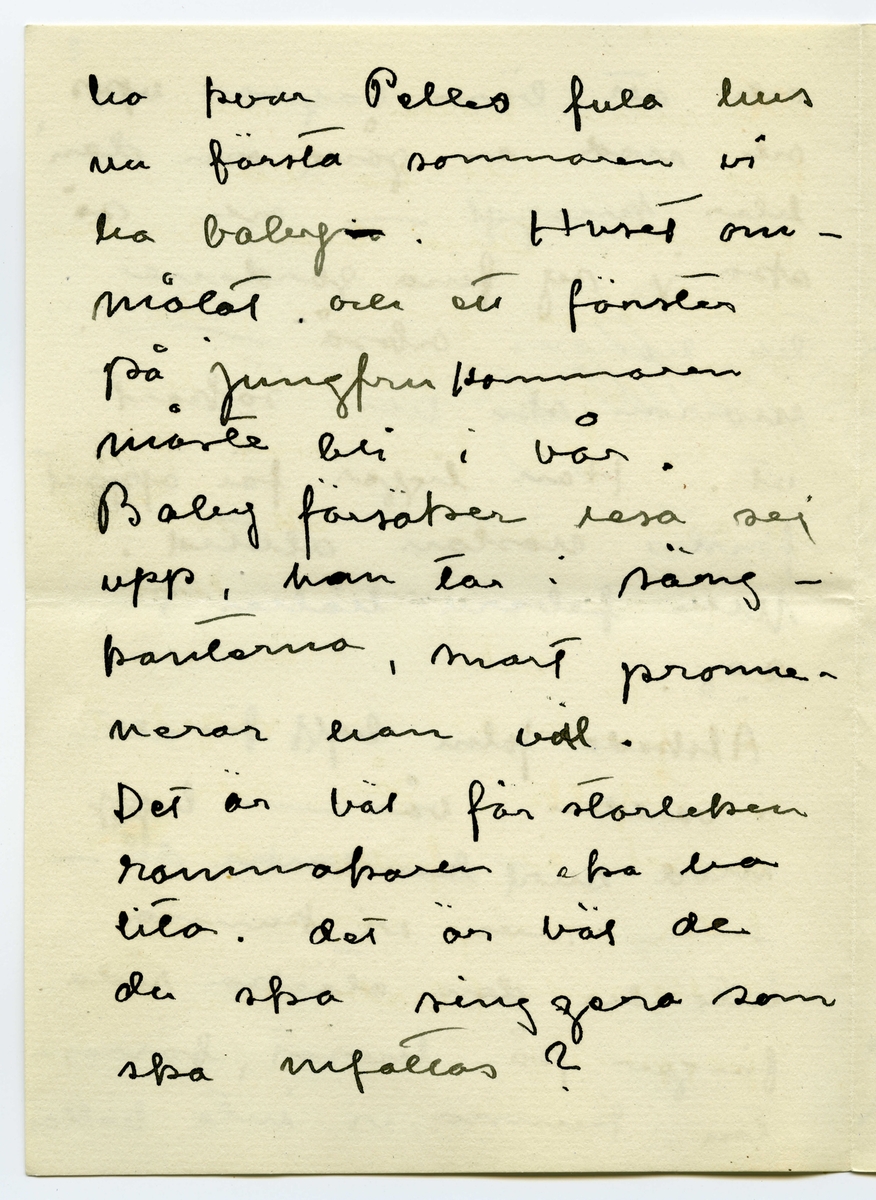 ha kvar Pelles fula hus
nu första sommaren vi
ha baby. Huset om-
målat och ett fönster
på jungfrukammaren
måste bli i vår.
Baby försöker resa sej
upp, han tar i säng-
kanterna, snart prome-
nerar han väl.
Det är väl för storleken
rammakaren ska ha
lita. det är väl de
du ska singgera som
ska infattas?